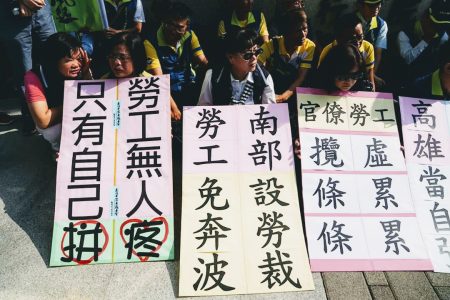 勞工無人疼
只有自己拼
南部設勞裁
勞工免奔波
勞工虛累累
官僚攬條條
高雄當自強